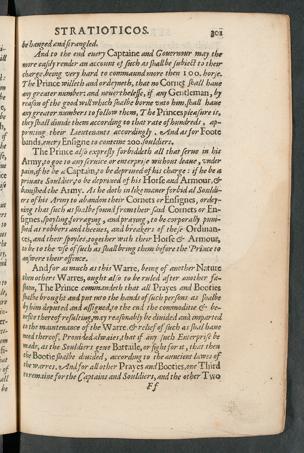 STRATIOTICOS. 101
be hanged and strangled.
And to the end every Captaine and Governour may the
more easily render an account of such as shalbe subiect to their
charge, being very hard to commaund more then 100. horse.
The Prince willeth and ordeyneth, that no Cornet shall haue
any greater number: and neuerthelesse, if any Gentleman, by
reason of the good will which shalbe borne vnto him, shall haue
any greater numbers to follow them, The Princes pleasure is,
they shall diuide them according to that rate of hundreds, ap-
pointing their Lieutenants accordingly. And as for Foote
bands, euery Ensigne to conteine 200. souldiers.
The Prince also expresly forbiddeth all that serue in his
Army, to goe to any seruice or enterprise without leaue, vnder
paine, if he be a Captain, to be depriued of his charge: if he be a
priuate Souldier, to be depriued of his Horse and Armour, &
banished the Army. As he doth in like maner forbid al Souldi-
ers of his Army to abandon their Cornets or Ensignes, ordey-
ning that such as shalbe found from their said Cornets or En-
signes, spoyling, forraging, and praying, to be corporally puni-
shed as robbers and theeues, and breakers of these Ordinan-
ces, and their spoyles, together with their Horse & Armour,
to be to the vse of such as shall bring them before the Prince to
answere their offence.
And for as much as this Warre, being of another Nature
then others Warres, ought also to be ruled after another fa-
shion, The Prince commandeth that all Prayes and Booties
shalbe brought and put into the hands of such persons as shalbe
by him deputed and assigned, to the end the commoditie & be-
nefite thereof resulting, may reasonably be diuided and imparted
to the maintenance of the Warre, & relief of such as shall haue
need thereof. Prouided alwaies, that if any such Enterprise be
made, as the Souldiers gene Battaile, or fight for it, that then
the Bootie shalbe diuided, according to the auncient lawes of
the warres. And for all other Prayes and Booties, one Third
to remaine for the Captains and Souldiers, and the other Two
Ff